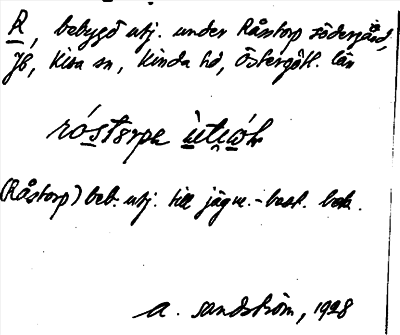 R, bebyggd utj. under Råstorp Södergård,
JB, Kisa sn, Kinda hd, Östergötl. län
(Råstorp) beb. utj. till jägm.-bost. bok.
A. Sandström, 1928